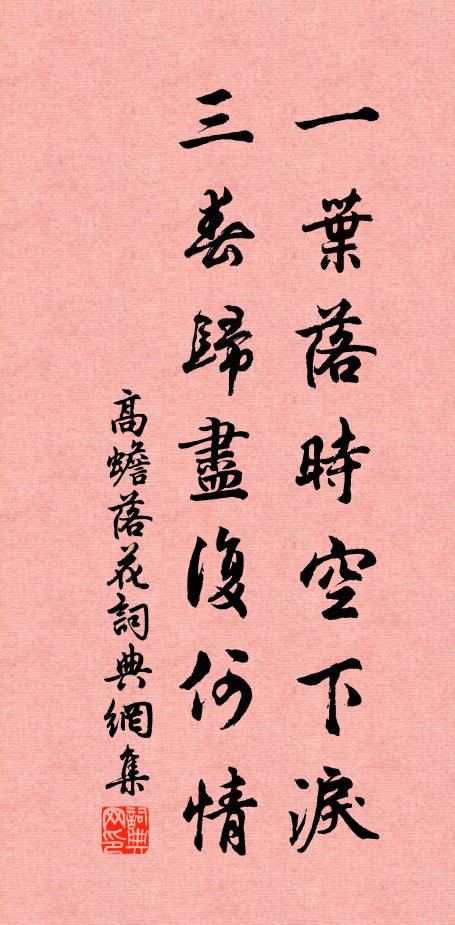 一葉落時空下淚
三春歸盡復何情
高蟾落花詞典網集
詞典网印